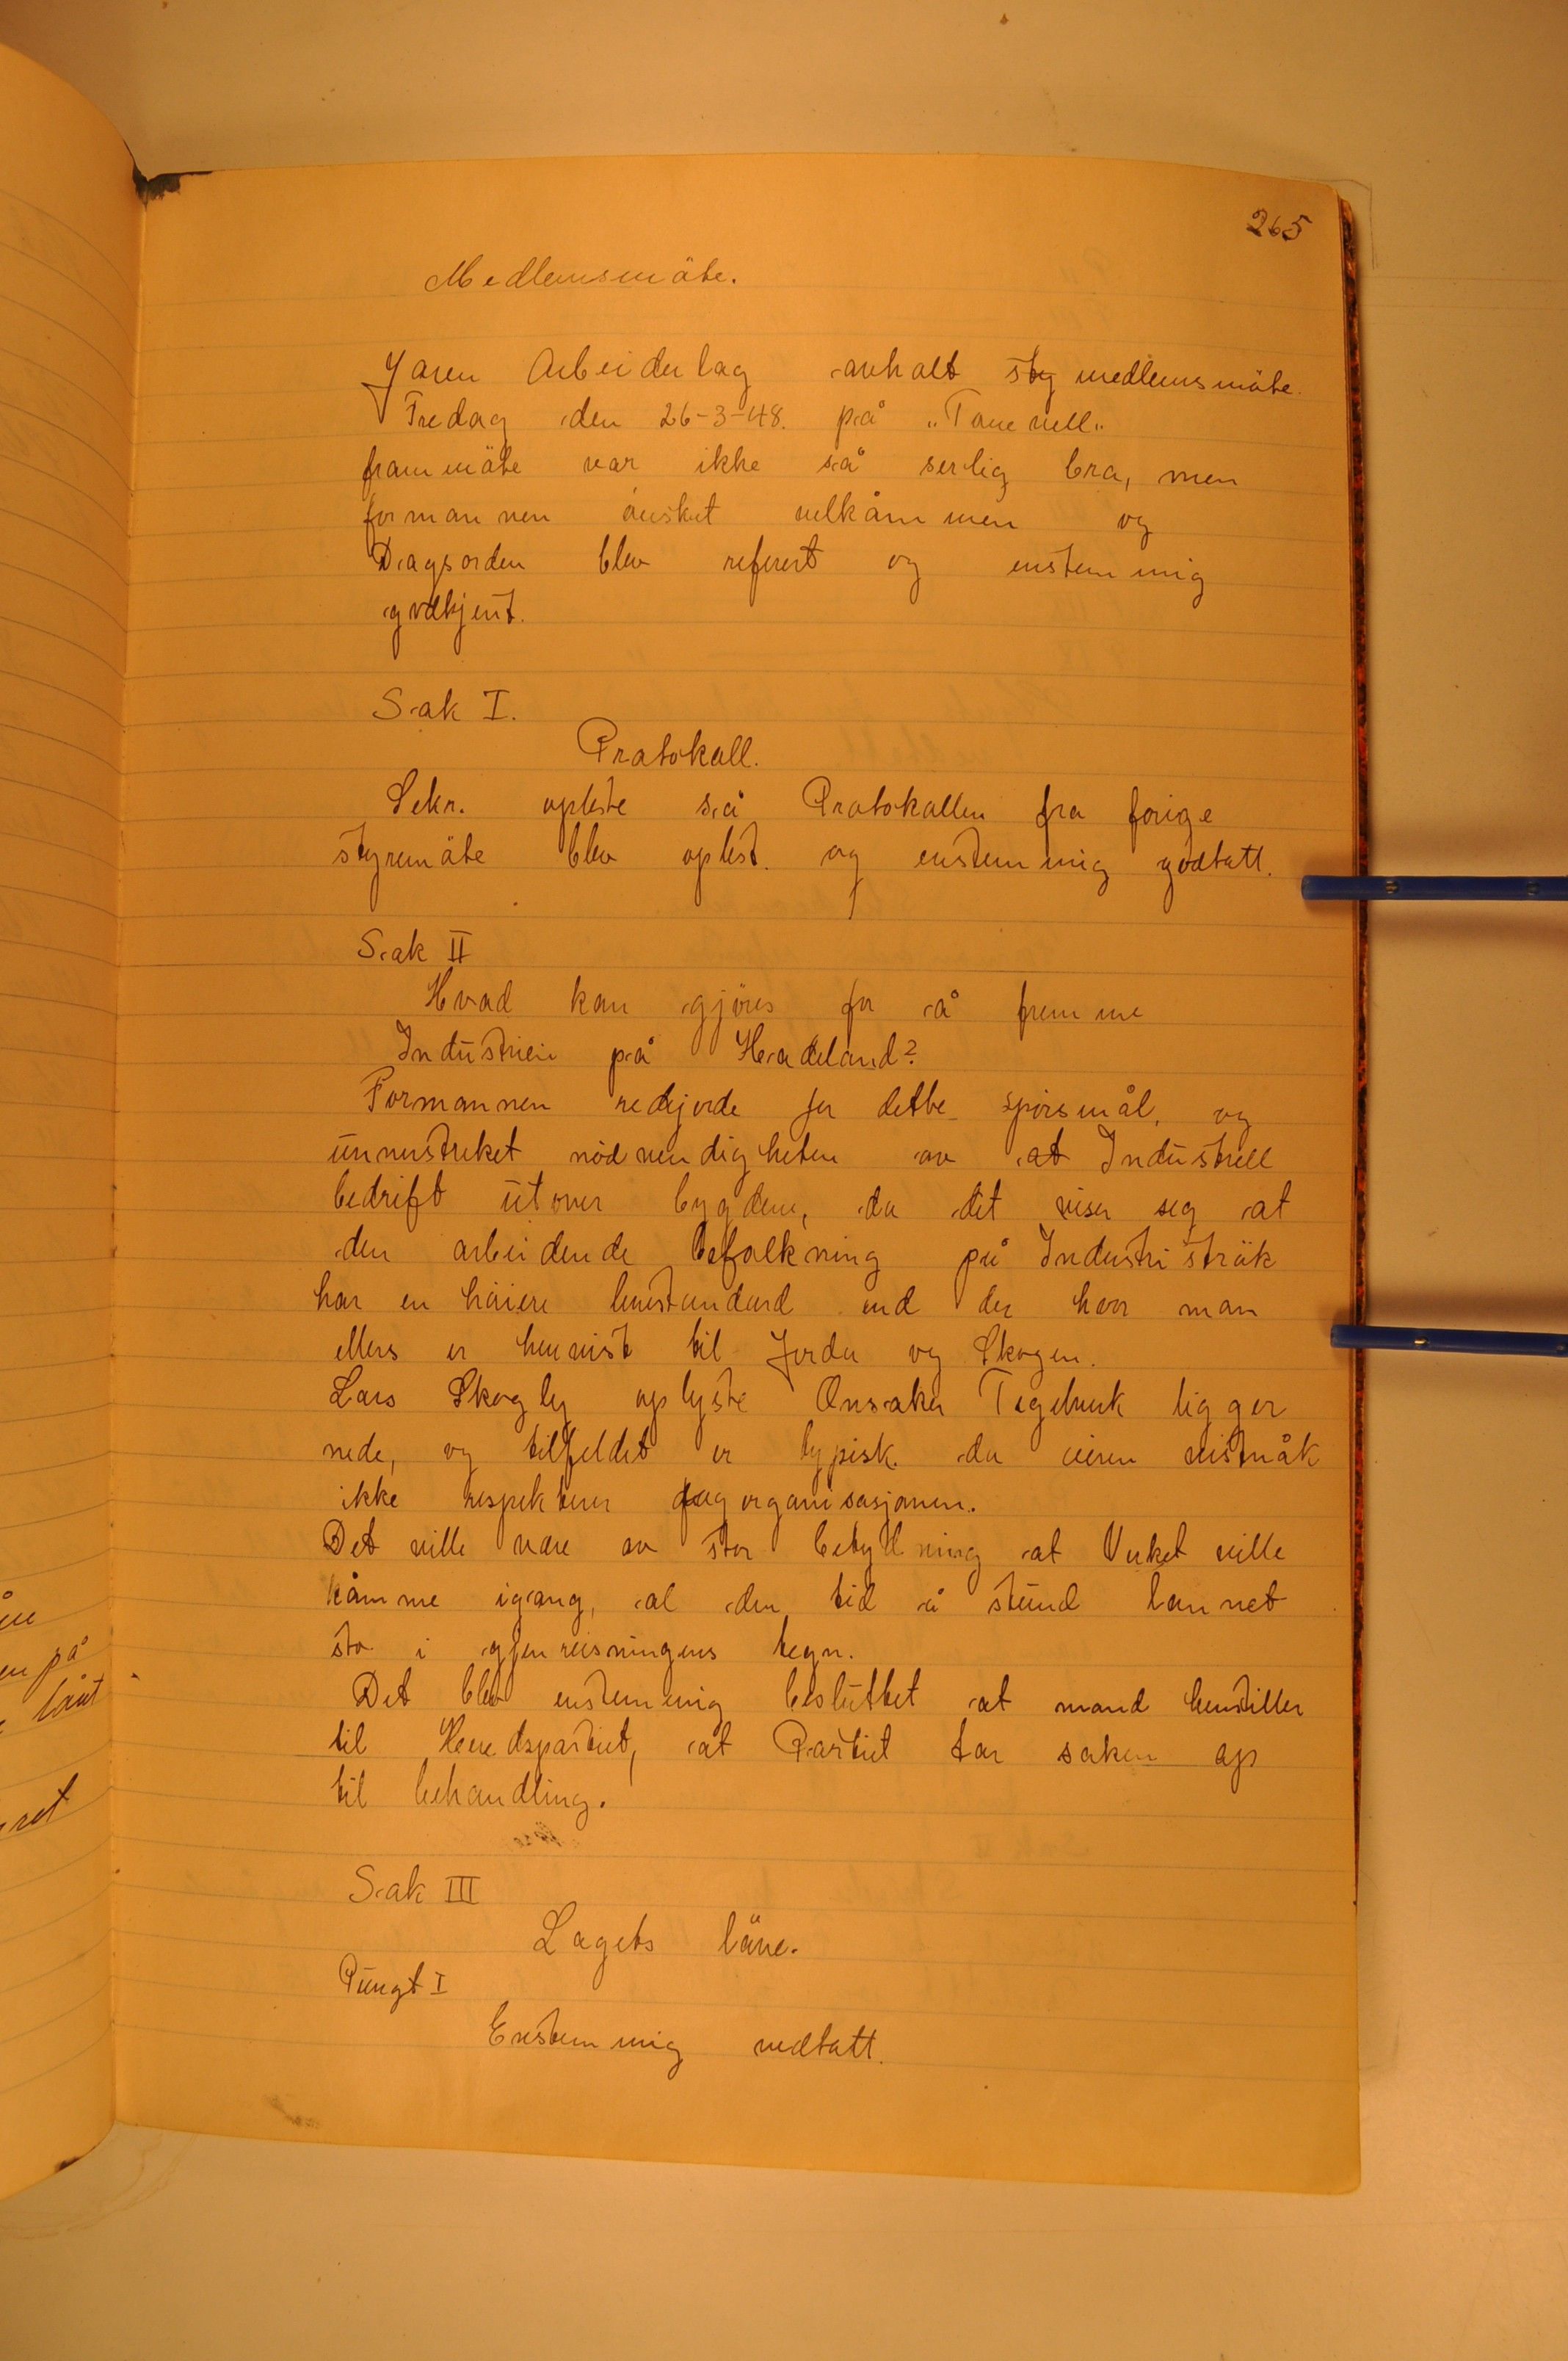 265
Medlemsmöte.
Jaren Arbeiderlag avholt sty medlemsmöte.
Fredag den 26-3-48. på "Tomevell"
frammöte var ikke så serlig bra, men
formannen önsket velkommen og
Dagsorden blev referert og enstemmig
godkjent.
Sak I.
Protokoll.
Sekr. opleste så Protokollen fra forige
styremöte blev oplest og enstemmig godtatt.
Sak II
Hvad kan gjöres for å fremme
Industrien på Hadeland?
Formannen redejorde for dette spörsmål, og
unnerstreket nödvendigheten av at Industriell
bedrift utover bygdene, da det viser seg at
den arbeidende befolkning på Industriströk
har en höiere levestandard end der hvor man
ellers er henvist til Jorda og Skogen.
Lars Skogly oplyste Onsaker Tegelverk ligger
nede, og tilfeldet er typisk da eieren
ikke respekterer fagorganisasjonen.
Det ville være av stor betydning at Verket ville
komme igang, al den tid å stund lannet
sto i gjenreisningens tegn.
Det blev enstemmig besluttet at mand henstiller
til Heredspartiet, at Partiet tar saken op
til behandling.
Sak III
Lagets låne.
Pungt I
Enstemmig vedtatt.
en på